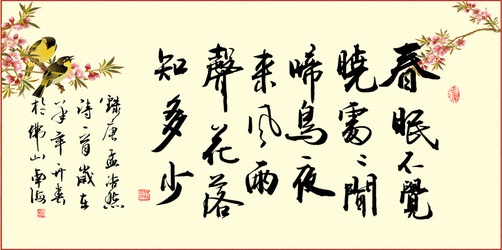 春眠不覺
曉處〻聞
啼鳥夜
来風雨
聲花落
知多少
錄唐孟浩然
詩一首歲在
年
於佛山南海